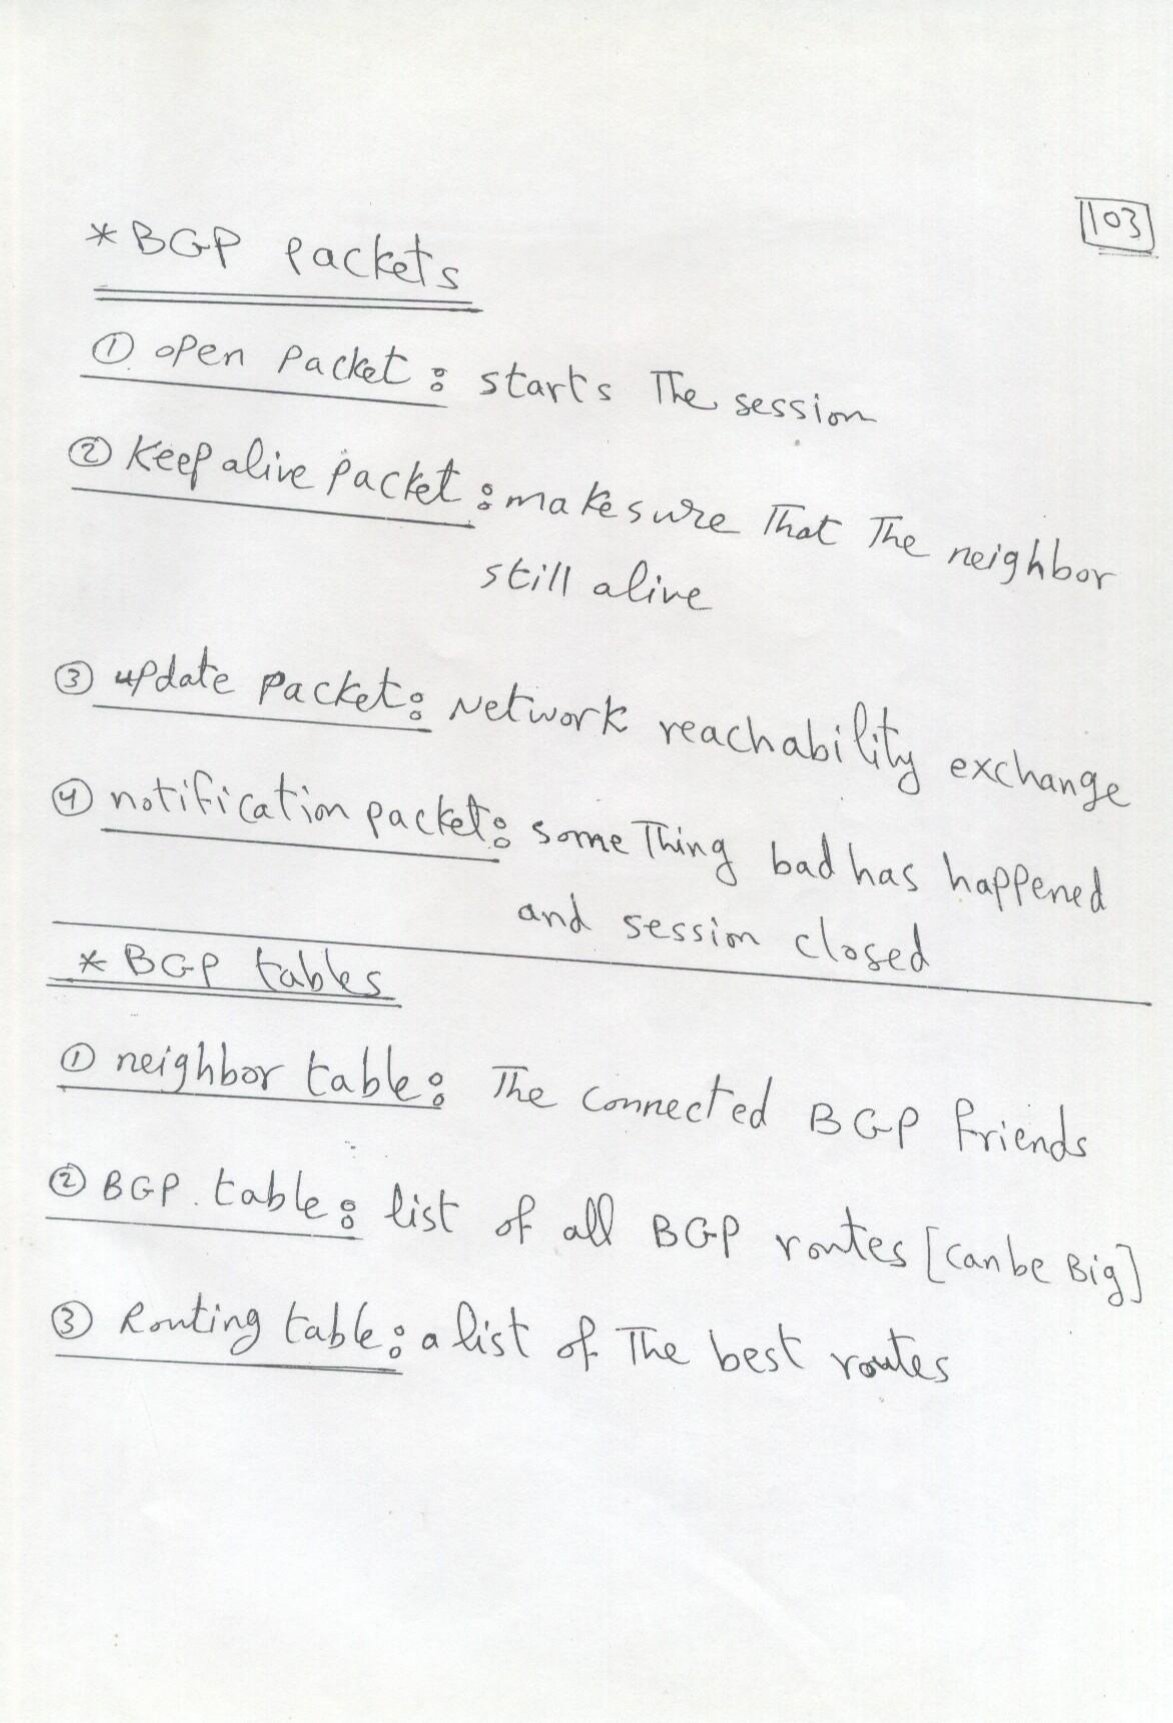 103
* BGP packets
① open packet: starts The session
② Keep alive packet: make sure That The neighbor
still alive
③ update packet: Network reachability exchange
④ notification packet: some Thing bad has happened
and session closed
* BGP tables
① neighbor table: The connected BGP friends
② BGP table: list of all BGP routes [can be Big]
③ Routing table: a list of The best routes